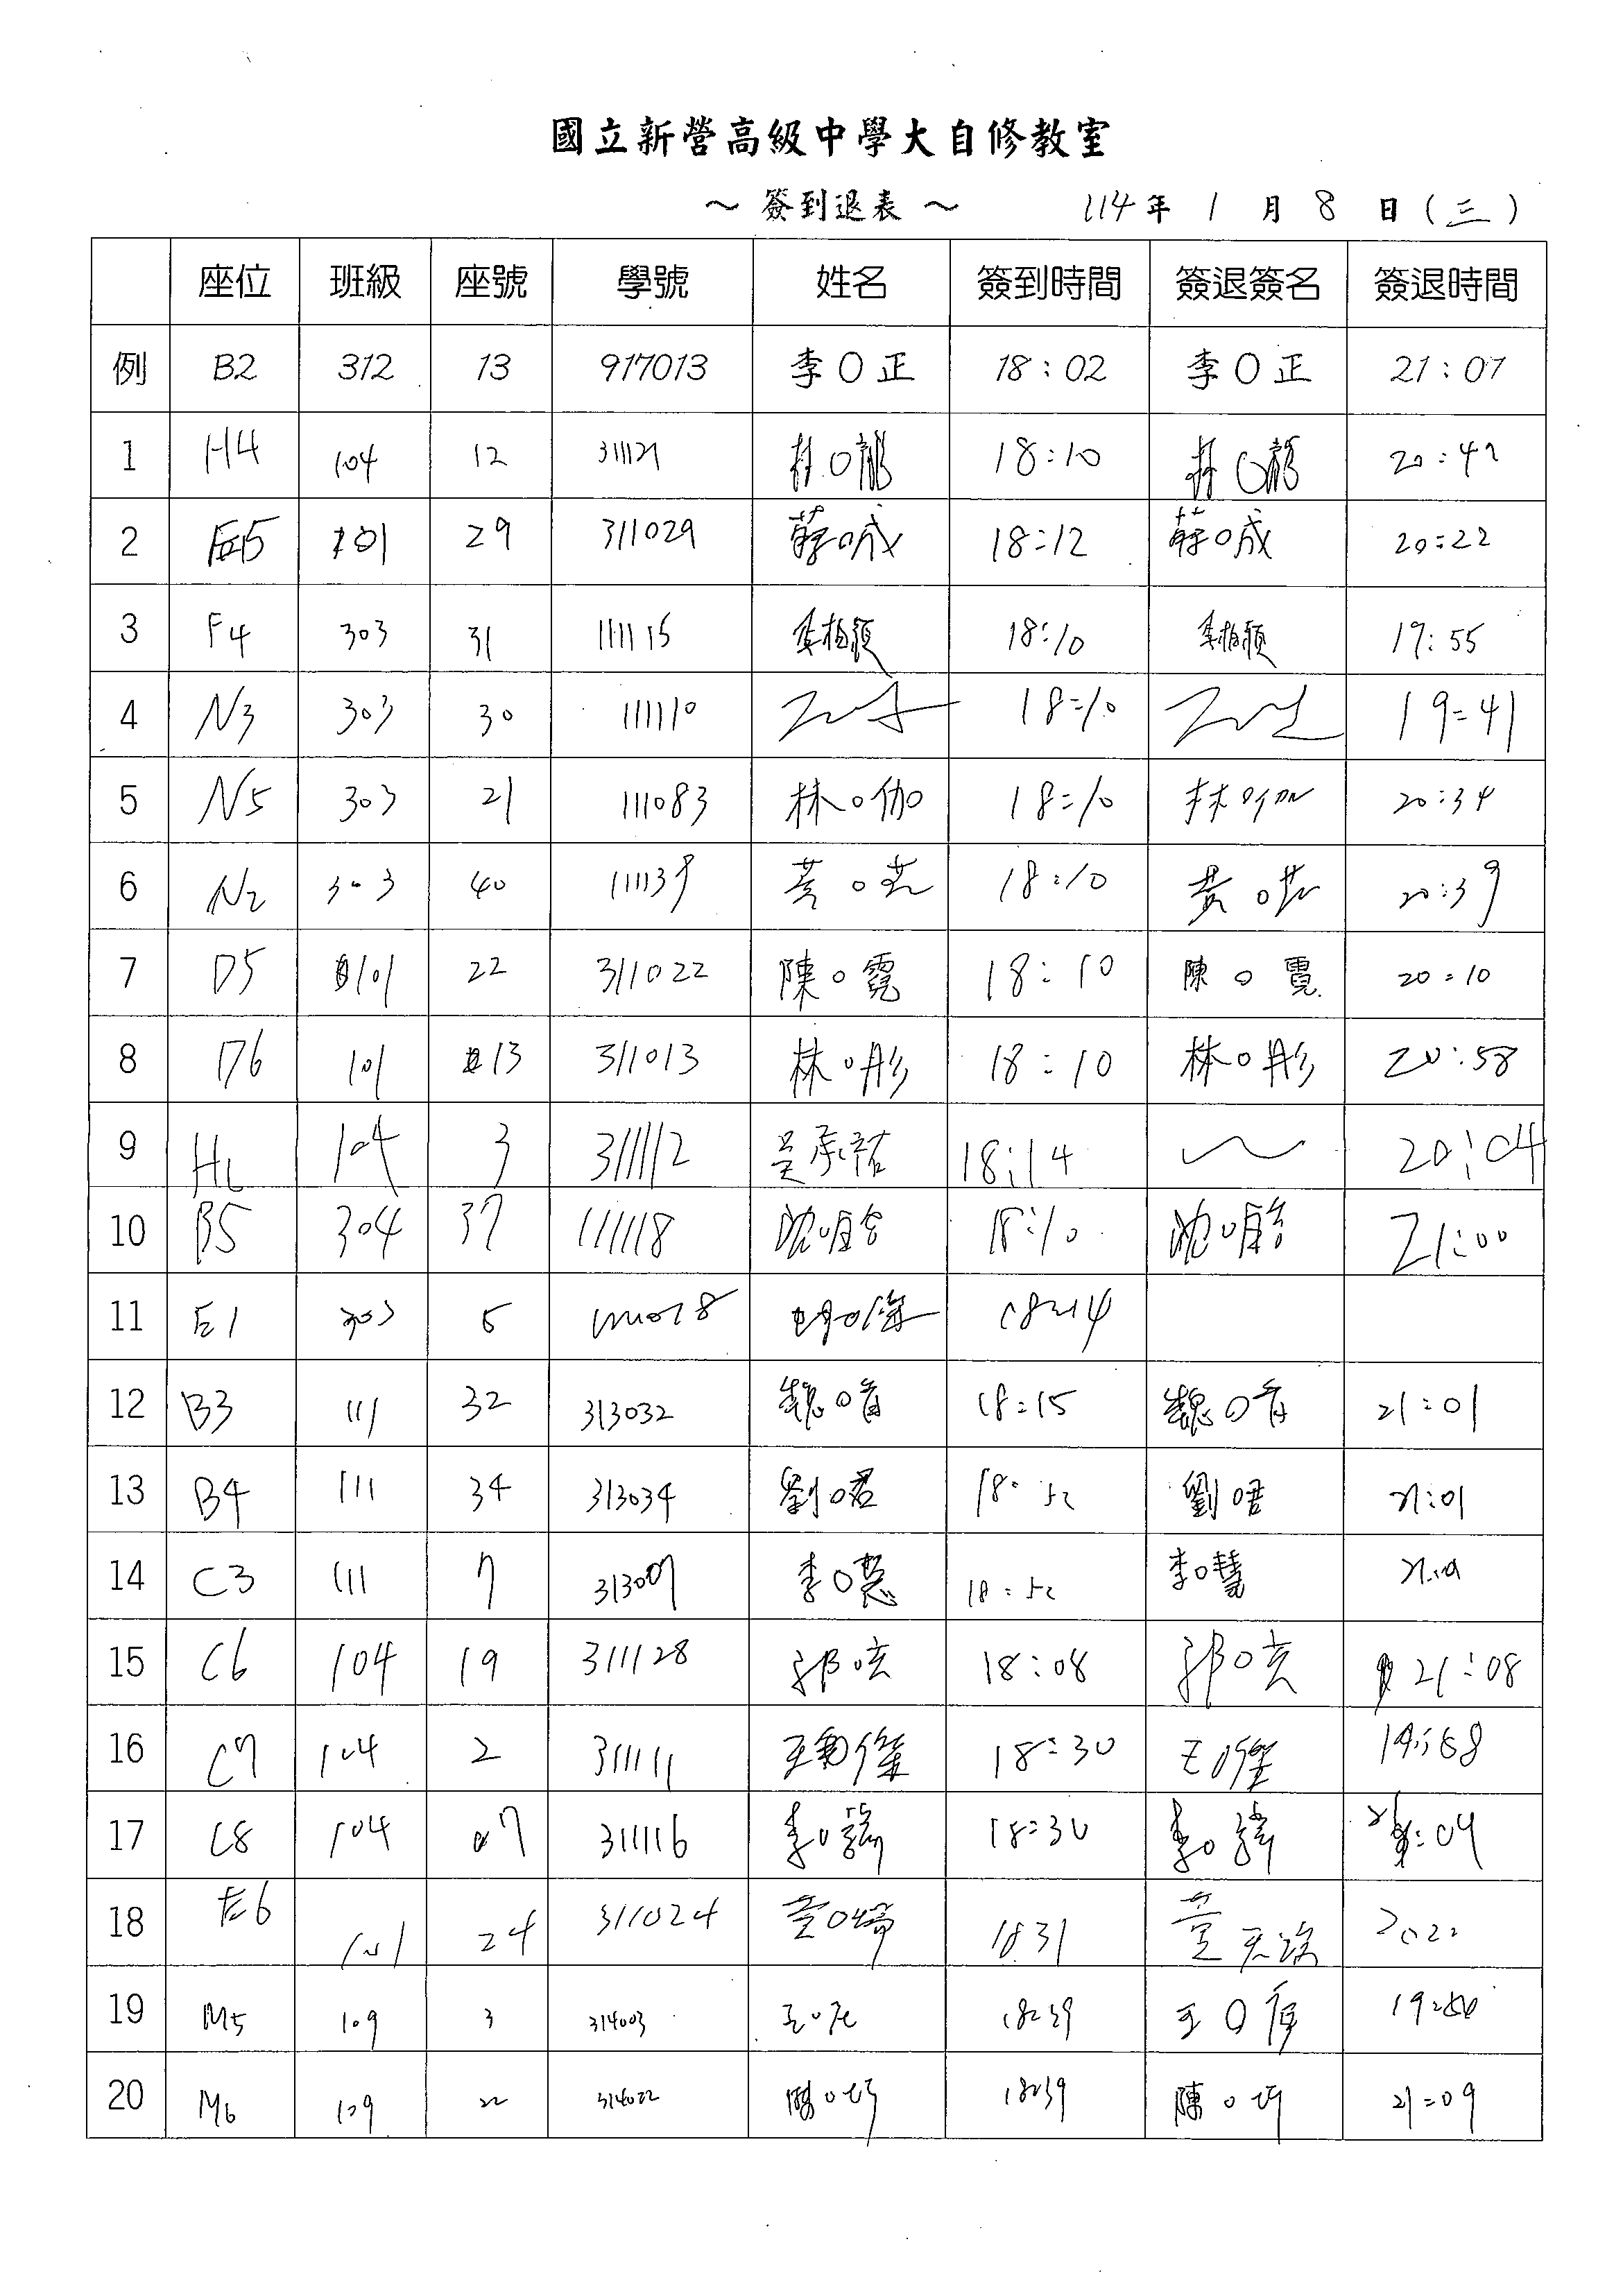 國立新營高級中學大自修教室
～ 簽到退表 ～ 114年 1 月 8 日(三)
座位 班級 座號 學號 姓名 簽到時間 簽退簽名 簽退時間
例 B2 312 13 917013 李O正 18:02 李O正 21:07
1 H4 104 12 311121 林O龍 18:10 林O龍 20:47
2 E5 101 29 311029 蔡O成 18:12 蔡O成 20:22
3 F4 303 31 111115 18:10 19:55
4 N3 303 30 111110 18:10 19:41
5 N5 303 21 111083 林O伽 18:10 林O伽 20:34
6 N2 303 40 111139 黃O芸 18:10 黃O芸 20:39
7 D5 101 22 311022 陳O霓 18:10 陳O霓 20:10
8 D6 101 13 311013 林O彤 18:10 林O彤 20:58
9 H6 104 3 311112 吳承祐 18:14 20:04
10 B5 304 37 111118 沈O 18:10 沈O 21:00
11 E1 303 5 18:14
12 B3 111 32 313032 魏O宥 18:15 魏O宥 21:01
13 B4 111 34 313034 劉O君 18:52 劉O君 21:01
14 C3 111 7 313007 李O慧 18:52 李O慧
15 C6 104 19 311128 郭O宏 18:08 郭O宏 21:08
16 C7 104 2 311111 18:30 王O傑 19:58
17 C8 104 07 311116 李O諭 18:30 李O :09
18 E6 101 24 311024 18 31 2022
19 M5 109 3 314003 王O 18:39 王O 19:
20 M6 109 22 314022 陳O巧 18:39 陳O巧 21:09